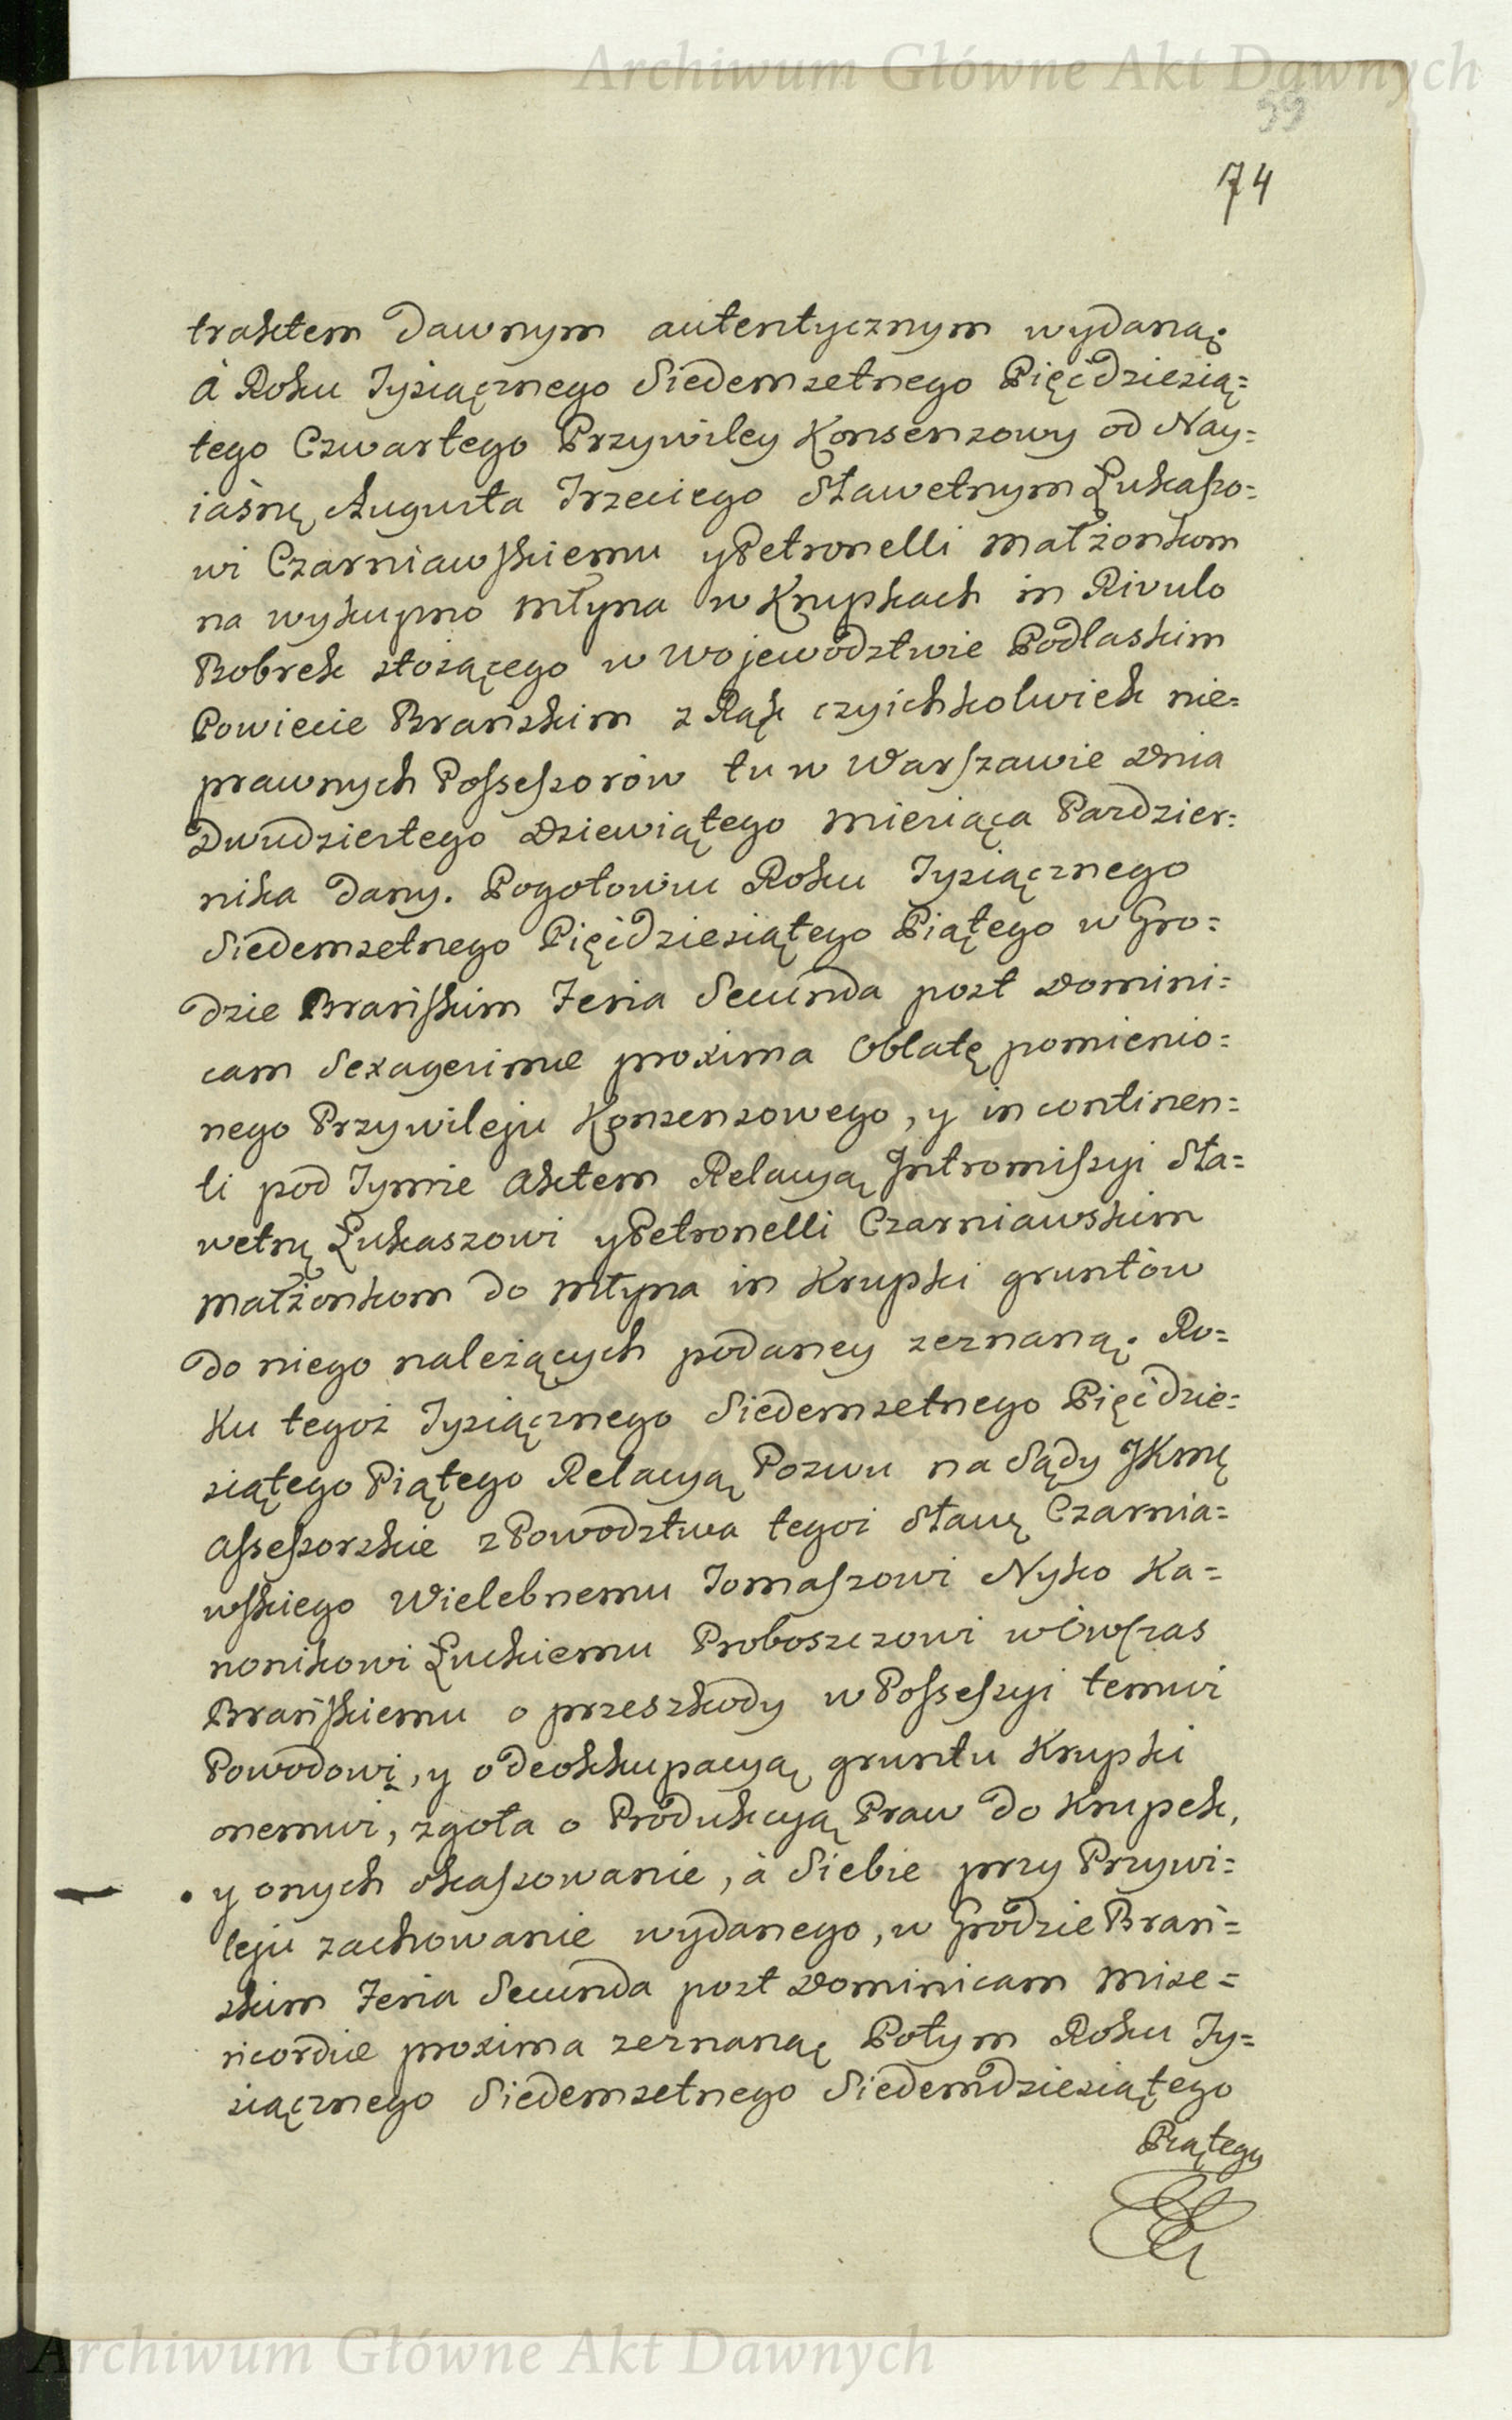 Archiwum Główne Akt Dawnych
59
74
traktem dawnym autentycznym wydaną.
à Roku Tysiącznego Siedemsetnego Pięćdziesią=
tego Czwartego Przywiley Konsensowy od Nay=
iaśnę Augusta Trzeciego Sławetnym Łukaszo=
wi Czarniawskiemu y Petronelli małżonkom
na wykupno młyna w Krupkach in Rivulo
Bobrek stoiącego w Województwie Podlaskim
Powiecie Brańskim z Rąk czyichkolwiek nie=
prawnych Possessorów tu w Warszawie Dnia
Dwudziestego Dziewiątego miesiąca Pazdzier=
nika dany. Pogotowiu Roku Tysiącznego
Siedemsetnego Pięćdziesiątego Piątego w Gro=
dzie Brańskim Feria Secunda post Domini=
cam Sexagesimæ proxima Oblatę pomienio=
nego Przywileju Konsensowego, y incontinen=
ti pod Tymże Aktem Relacyą Intromissyi Sła=
wetnę Łukaszowi y Petronelli Czarniawskim
małżonkom do młyna in Krupki gruntów
do niego należących podaney zeznaną. Ro=
ku tegoż Tysiącznego Siedemsetnego Pięćdzie=
siątego Piątego Relacyą Pozwu na Sądy JKmę
Assessorskie z Powodztwa tegoż Sławę Czarnia=
wskiego Wielebnemu Tomaszowi Nyko Ka=
nonikowi Łuckiemu Proboszczowi wówczas
Brańskiemu o przeszkody w Possessyi temuż
Powodowi, y o deokkupacyą gruntu Krupki
onemuż, zgoła o Produkcyą Praw do Krupek,
y onych skassowanie, à Siebie przy Przywi=
leju zachowanie wydanego, w Grodzie Brań=
skim Feria Secunda post Dominicam Mise=
ricordiæ proxima zeznaną Potym Roku Ty=
siącznego Siedemsetnego Siedemdziesiątego
Piątego
Archiwum Główne Akt Dawnych